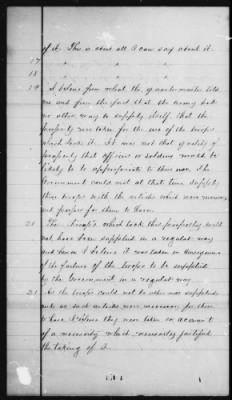 of it. This is about all I can say about it.
17 " " "
18 " " "
19 I believe from what the quartermaster told
me and from the fact that the army had
no other way to supply itself, that the
property was taken for the use of the troops
which took it. It was not that quality of
property that officers or soldiers would be
likely to to appropriate to their own. The
Government could not at that time supply
these troops with the articles which were necess-
proper for them to have.
20 The troops which took this property could
not have been supplied in a regular way
and hence I believe it was taken in consequence
of the failure of the troops to be supplied
by the Government in a regular way.
21 As the troops could not be otherwise supplied
and as such articles were necessary for them
to have I believe they were taken on account
of a necessity which necessity justified
the taking of it.